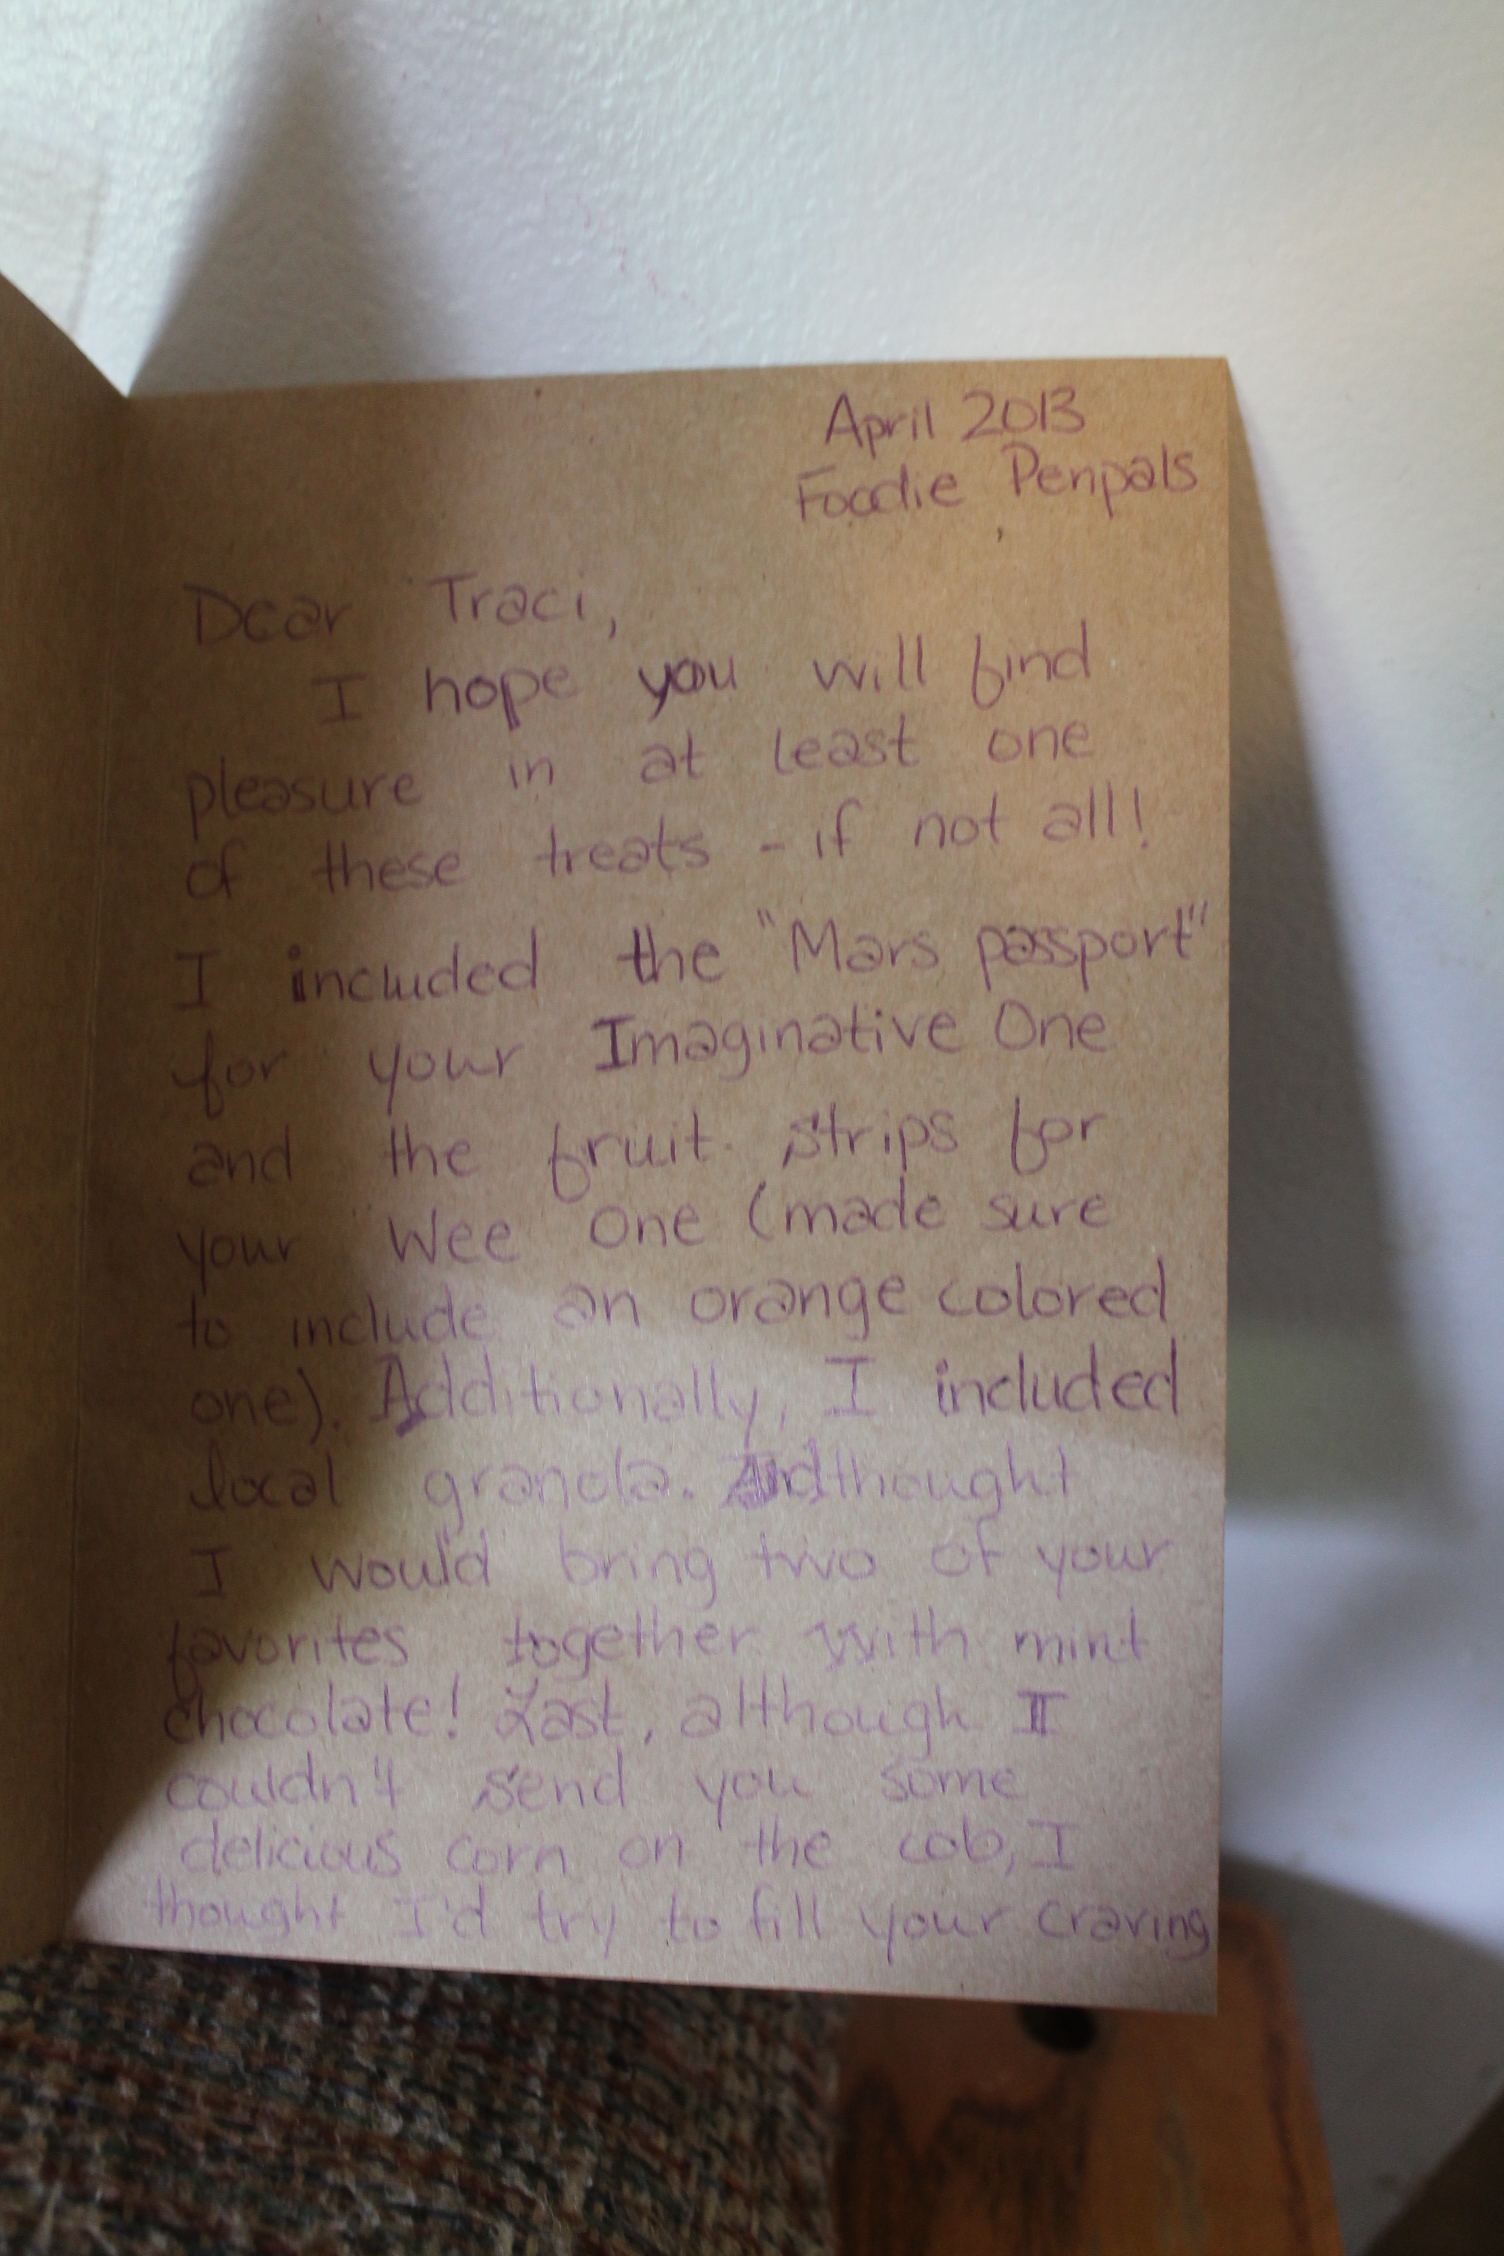 April 2013
Foodie Penpals
Dear Traci,
I hope you will find
pleasure in at least one
of these treats - if not all!
I included the "Mars passport"
for your Imaginative One
and the fruit strips for
your Wee One (made sure
to include an orange colored
one). Additionally, I included
local granola. And thought
I would bring two of your
favorites together with mint
chocolate! Last, although I
couldn't send you some
delicious corn on the cob, I
thought I'd try to fill your craving